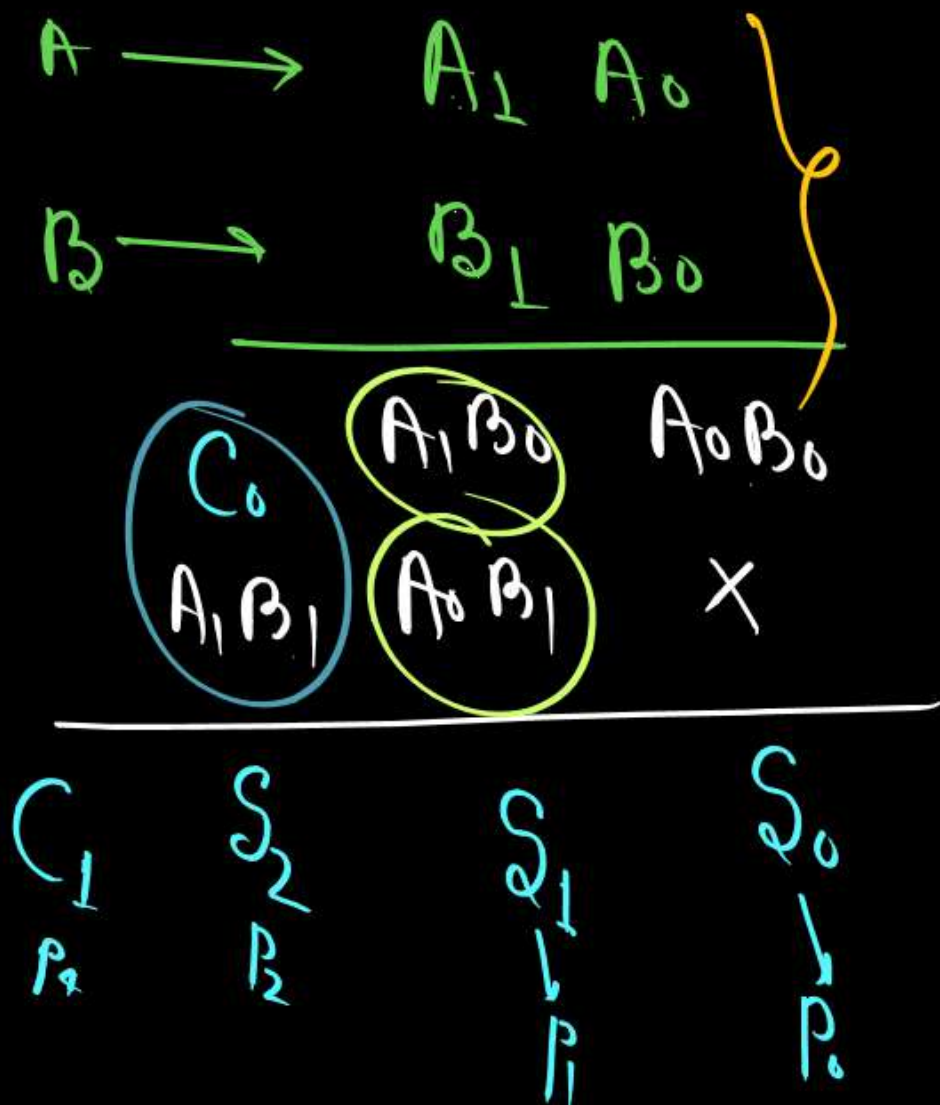 A → A₁ A₀
B → B₁ B₀
C₀ A₁B₀ A₀B₀
A₁B₁ A₀B₁ X
C₁ S₂ S₁ S₀
P₂ P₁ P₀